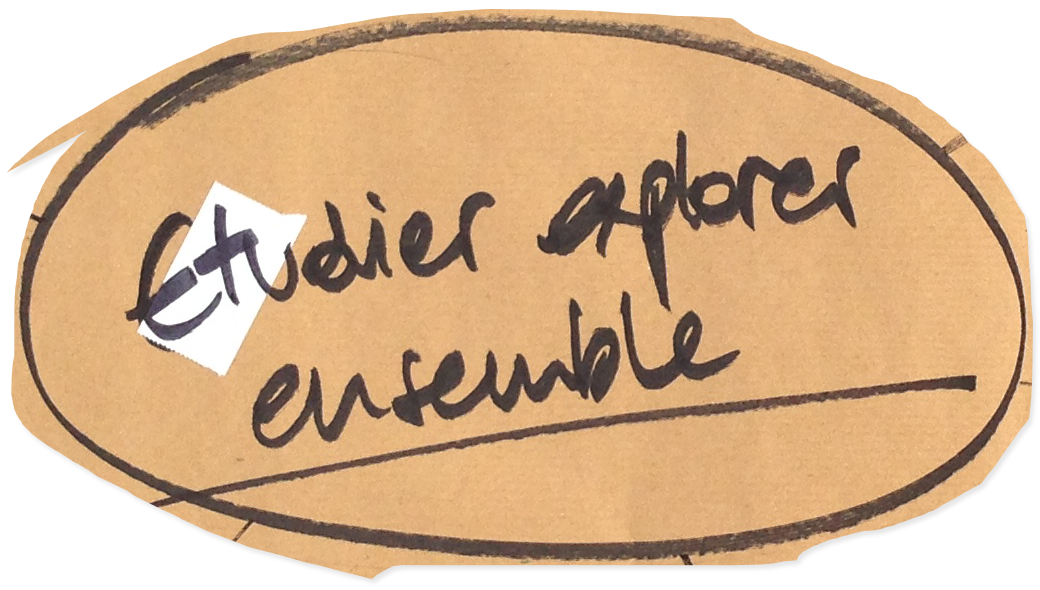 Etudier explorer
ensemble